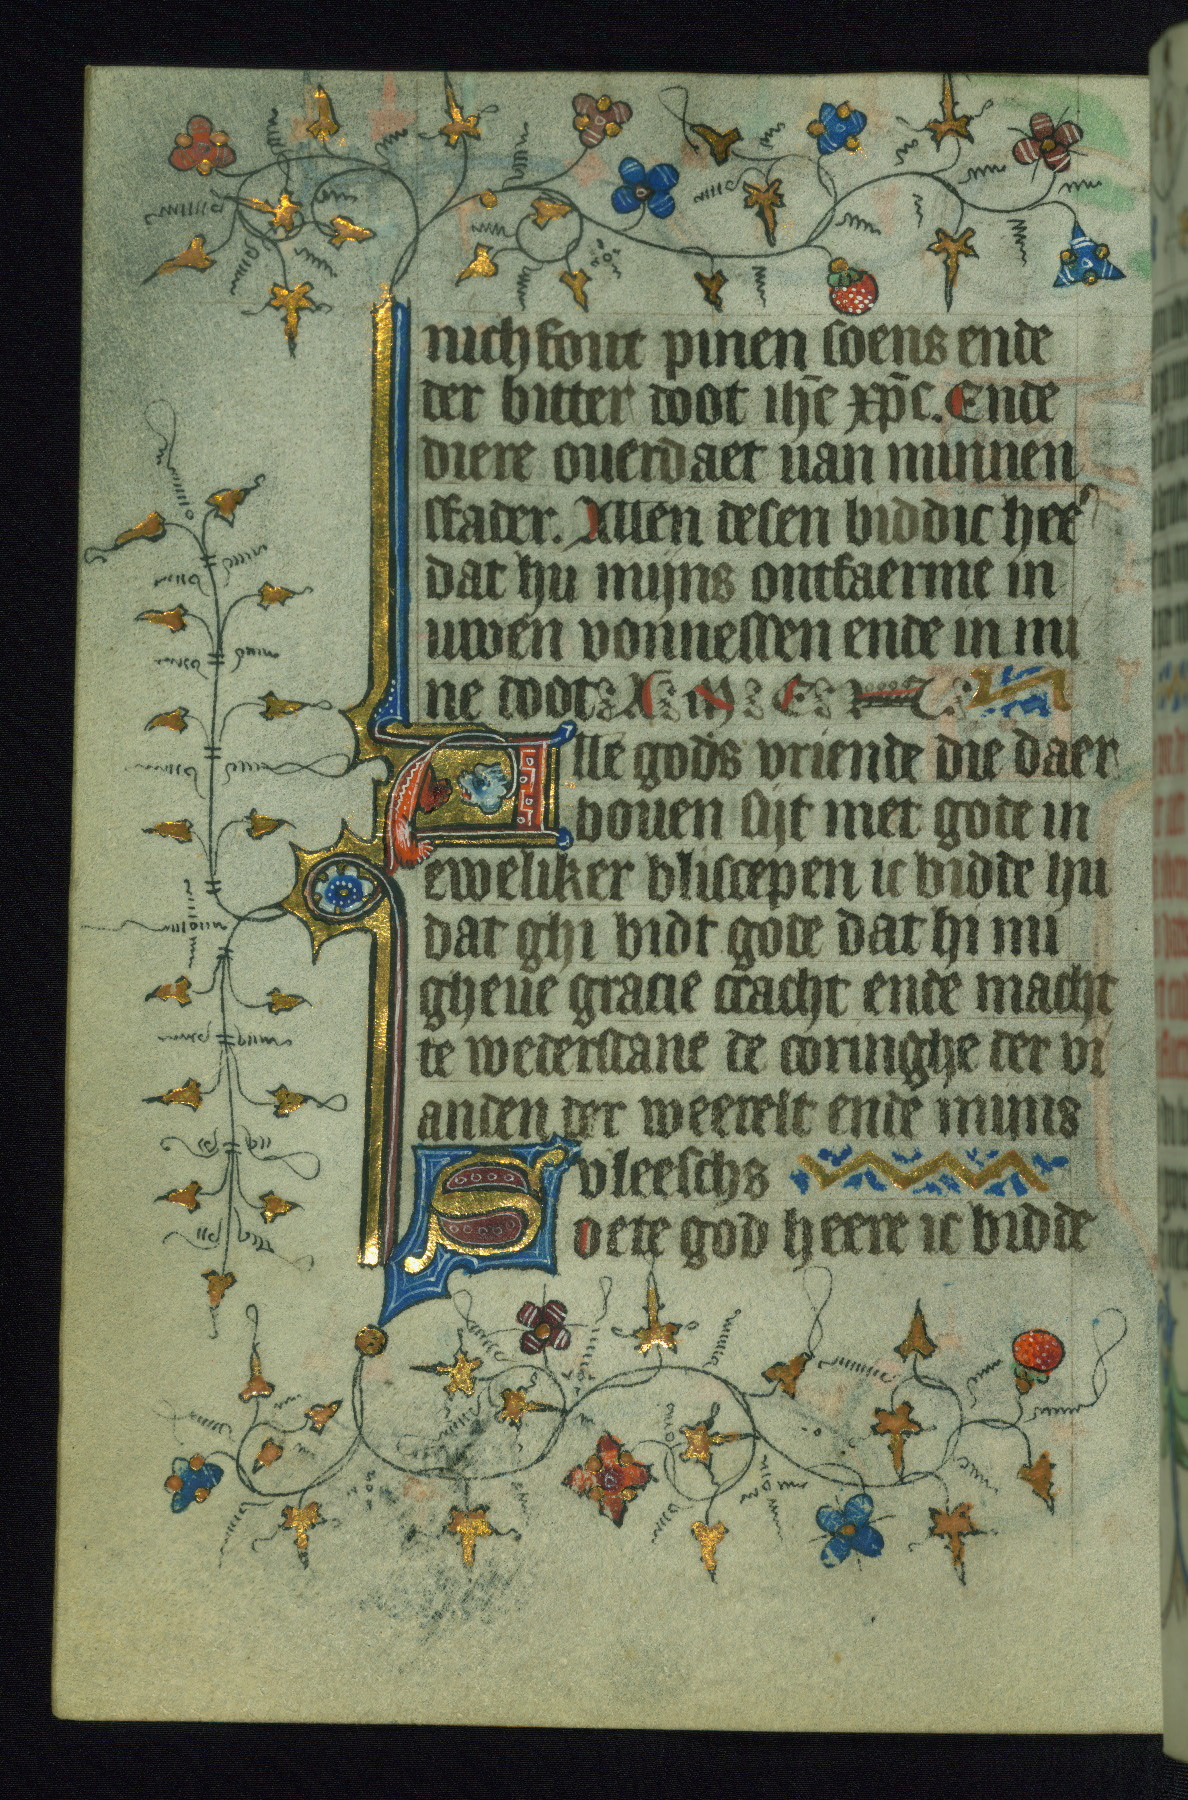 nichfout pinen soens ende
der bitter doot ihē xp̄c. Ende
diere ouerdaet uan minnen
sfader. Allen desen biddic heē
dat hu mijns ontfaerme in
uwen vonnessen ende in mi
ne doot. A M E
Alle gods vriende die daer
bouen sijt met gode in
eweliker bliscepen ic bidde hu
dat ghi bidt gode dat hi mi
gheue gracie cracht ende macht
te wederstane de coringhe der vi
anden der weerelt ende mijns
vleeschs
Soete god heere ic bidde